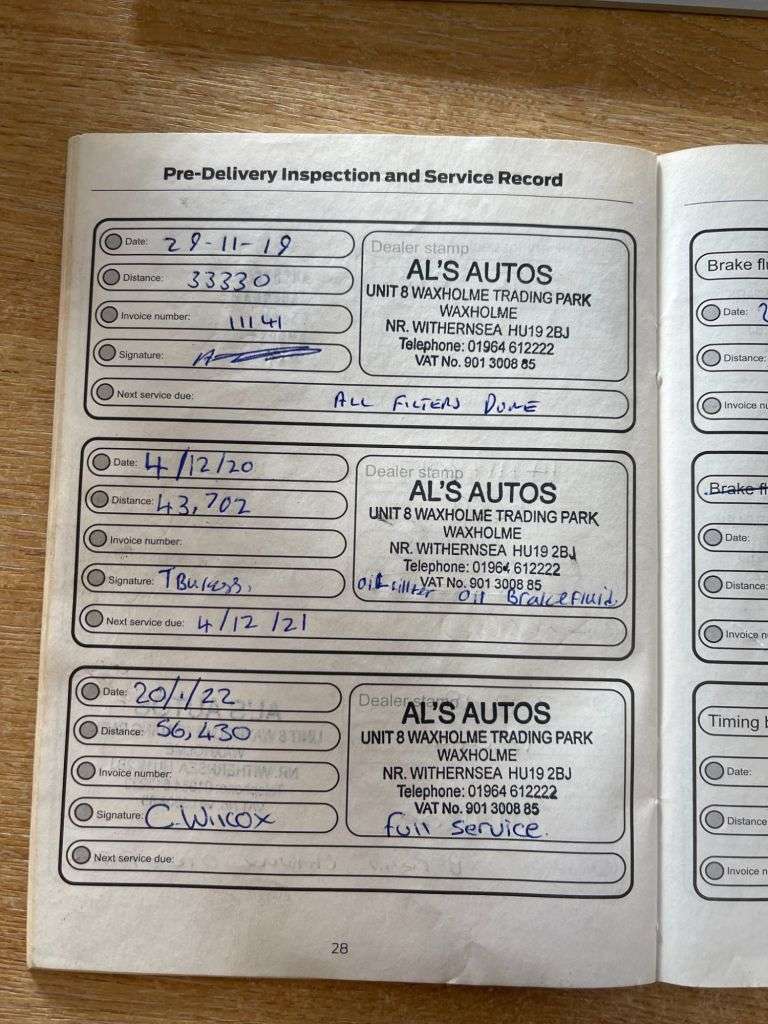 Pre-Delivery Inspection and Service Record
Date: 29-11-19
Distance: 33330
Invoice number: 11141
Signature:
Next service due: ALL FILTERS DONE
Dealer stamp
AL'S AUTOS
UNIT 8 WAXHOLME TRADING PARK
WAXHOLME
NR. WITHERNSEA HU19 2BJ
Telephone: 01964 612222
VAT No. 901 3008 85
Date: 4/12/20
Distance: 43,702
Invoice number:
Signature: T Burgess.
Next service due: 4/12/21
Dealer stamp
AL'S AUTOS
UNIT 8 WAXHOLME TRADING PARK
WAXHOLME
NR. WITHERNSEA HU19 2BJ
Telephone: 01964 612222
VAT No. 901 3008 85
oil fillter oil Brake fluid.
Date: 20/1/22
Distance: 56,430
Invoice number:
Signature: C. Wilcox
Next service due:
Dealer stamp
AL'S AUTOS
UNIT 8 WAXHOLME TRADING PARK
WAXHOLME
NR. WITHERNSEA HU19 2BJ
Telephone: 01964 612222
VAT No. 901 3008 85
full service.
28
Brake flu
Date: 2
Distance:
Invoice nu
Brake fl
Date:
Distance:
Invoice n
Timing b
Date:
Distance
Invoice n